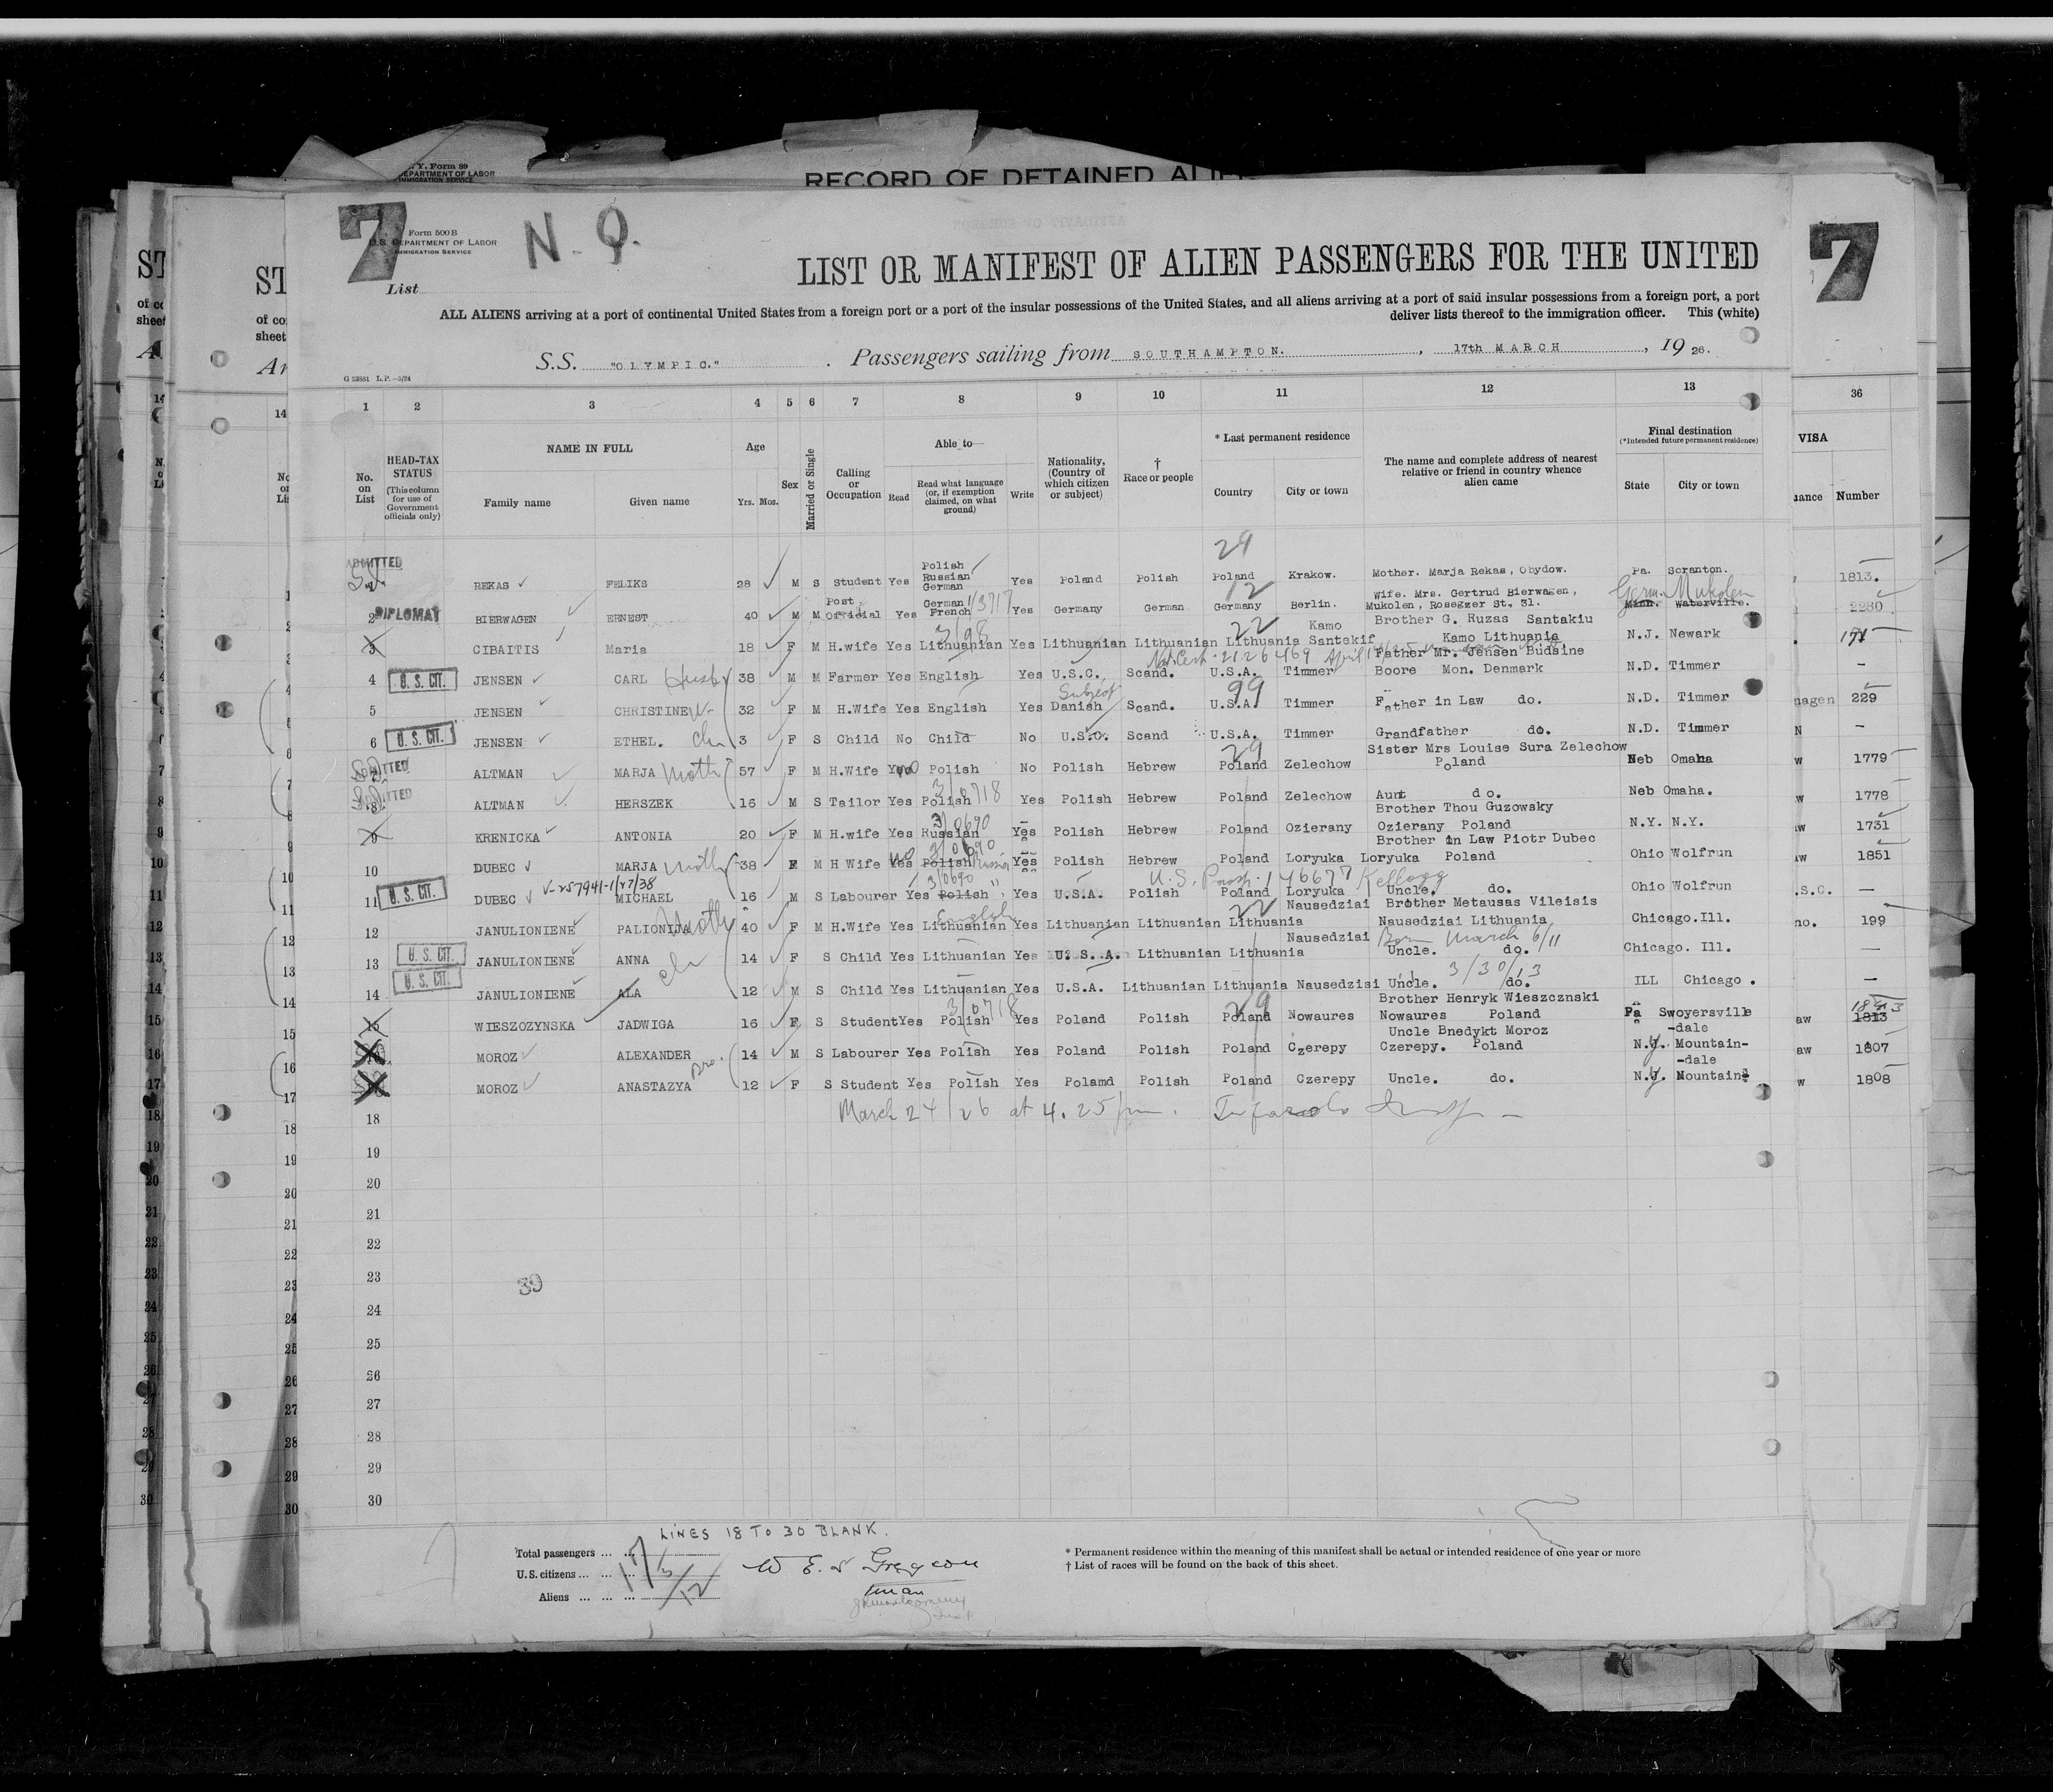 Y. Form 89
DEPARTMENT OF LABOR
IMMIGRATION SERVICE
RECORD OF DETAINED ALIE
7
Form 500 B
U.S. DEPARTMENT OF LABOR
IMMIGRATION SERVICE
List
N. Q.
7
LIST OR MANIFEST OF ALIEN PASSENGERS FOR THE UNITED
ALL ALIENS arriving at a port of continental United States from a foreign port or a port of the insular possessions of the United States, and all aliens arriving at a port of said insular possessions from a foreign port, a port
deliver lists thereof to the immigration officer. This (white)
S.S. "OLYMPIC." . Passengers sailing from SOUTHAMPTON. , 17th MARCH , 19 26.
G 23881 L.P.—5/24
1 2 3 4 5 6 7 8 9 10 11 12 13 36
No. on List
HEAD-TAX STATUS
(This column for use of Government officials only)
NAME IN FULL
Family name Given name
Age
Yrs. Mos.
Sex
Married or Single
Calling or Occupation
Able to—
Read
Read what language (or, if exemption claimed, on what ground)
Write
Nationality, (Country of which citizen or subject)
† Race or people
* Last permanent residence
Country City or town
The name and complete address of nearest relative or friend in country whence alien came
Final destination
(*Intended future permanent residence)
State City or town
VISA
Number
29
ADMITTED REKAS FELIKS 28 M S Student Yes Polish Russian German Yes Poland Polish Poland Krakow. Mother. Marja Rekas, Obydow. Pa. Scranton. 1813.
12
2 DIPLOMAT BIERWAGEN ERNEST 40 M M Post Official Yes German French 1/3717 Yes Germany German Germany Berlin. Wife. Mrs. Gertrud Bierwagen, Mukolen, Rosegzer St. 31. Minn. Waterville. Germ. Mukolen 2280
3/98 22
3 CIBAITIS Maria 18 F M H.wife Yes Lithuanian Yes Lithuanian Lithuanian Lithuania Kamo Santekif Brother G. Ruzas Santakiu Kamo Lithuania N.J. Newark 171
Nat Cert 2126469 April
4 U.S. CIT. JENSEN CARL Husb 38 M M Farmer Yes English Yes U.S.C. Scand. U.S.A. Timmer Father Mr. Jensen Budsine Boore Mon. Denmark N.D. Timmer —
Subject 99
5 JENSEN CHRISTINE W- 32 F M H.Wife Yes English Yes Danish Scand. U.S.A Timmer Father in Law do. N.D. Timmer 229
6 U.S. CIT. JENSEN ETHEL. Ch 3 F S Child No Child No U.S.C. Scand U.S.A. Timmer Grandfather do. N.D. Timmer —
29
7 ADMITTED ALTMAN MARJA Moth 57 F M H.Wife Yes no Polish No Polish Hebrew Poland Zelechow Sister Mrs Louise Sura Zelechow Poland Neb Omaha 1779
3/0718
8 ADMITTED ALTMAN HERSZEK 16 M S Tailor Yes Polish Yes Polish Hebrew Poland Zelechow Aunt do. Neb Omaha. 1778
3/0690
9 KRENICKA ANTONIA 20 F M H.wife Yes Russian Yes Polish Hebrew Poland Ozierany Brother Thou Guzowsky Ozierany Poland N.Y. N.Y. 1731
no 3/0690
10 DUBEC MARJA Moth 38 F M H Wife Yes Polish Russian Yes Polish Hebrew Poland Loryuka Brother in Law Piotr Dubec Loryuka Poland Ohio Wolfrun 1851
V-257941-1/27/38 3/0690 U.S. Passp. 146677 Kellogg
11 U.S. CIT. DUBEC MICHAEL 16 M S Labourer Yes Polish " Yes U.S.A. Polish Poland Loryuka Uncle. do. Ohio Wolfrun —
English 22
12 JANULIONIENE PALIONIJA Moth 40 F M H.Wife Yes Lithuanian Yes Lithuanian Lithuanian Lithuania Nausedziai Brother Metausas Vileisis Nausedziai Lithuania Chicago.Ill. 199
Born March 6/11
13 U.S. CIT. JANULIONIENE ANNA Ch 14 F S Child Yes Lithuanian Yes U.S.A. Lithuanian Lithuania Nausedziai Uncle. do. Chicago. Ill. —
3/30/13
14 U.S. CIT. JANULIONIENE ALA 12 M S Child Yes Lithuanian Yes U.S.A. Lithuanian Lithuania Nausedzisi Uncle. do. ILL Chicago. —
3/0718 29
15 WIESZOZYNSKA JADWIGA 16 F S Student Yes Polish Yes Poland Polish Poland Nowaures Brother Henryk Wieszcznski Nowaures Poland Pa Swoyersville -dale 1813
MOROZ ALEXANDER 14 M S Labourer Yes Polish Yes Poland Polish Poland Czerepy Uncle Bnedykt Moroz Czerepy. Poland N.Y. Mountain- -dale 1807
Bro.
MOROZ ANASTAZYA 12 F S Student Yes Polish Yes Polamd Polish Poland Czerepy Uncle. do. N.Y. Mountain 1808
18 March 24/26 at 4.25 pm.
19
20
21
22
23
39
24
25
26
27
28
29
30
LINES 18 TO 30 BLANK.
Total passengers ... ... 17
U.S. citizens ... ... ... 5
Aliens ... ... ... 12
* Permanent residence within the meaning of this manifest shall be actual or intended residence of one year or more
† List of races will be found on the back of this sheet.